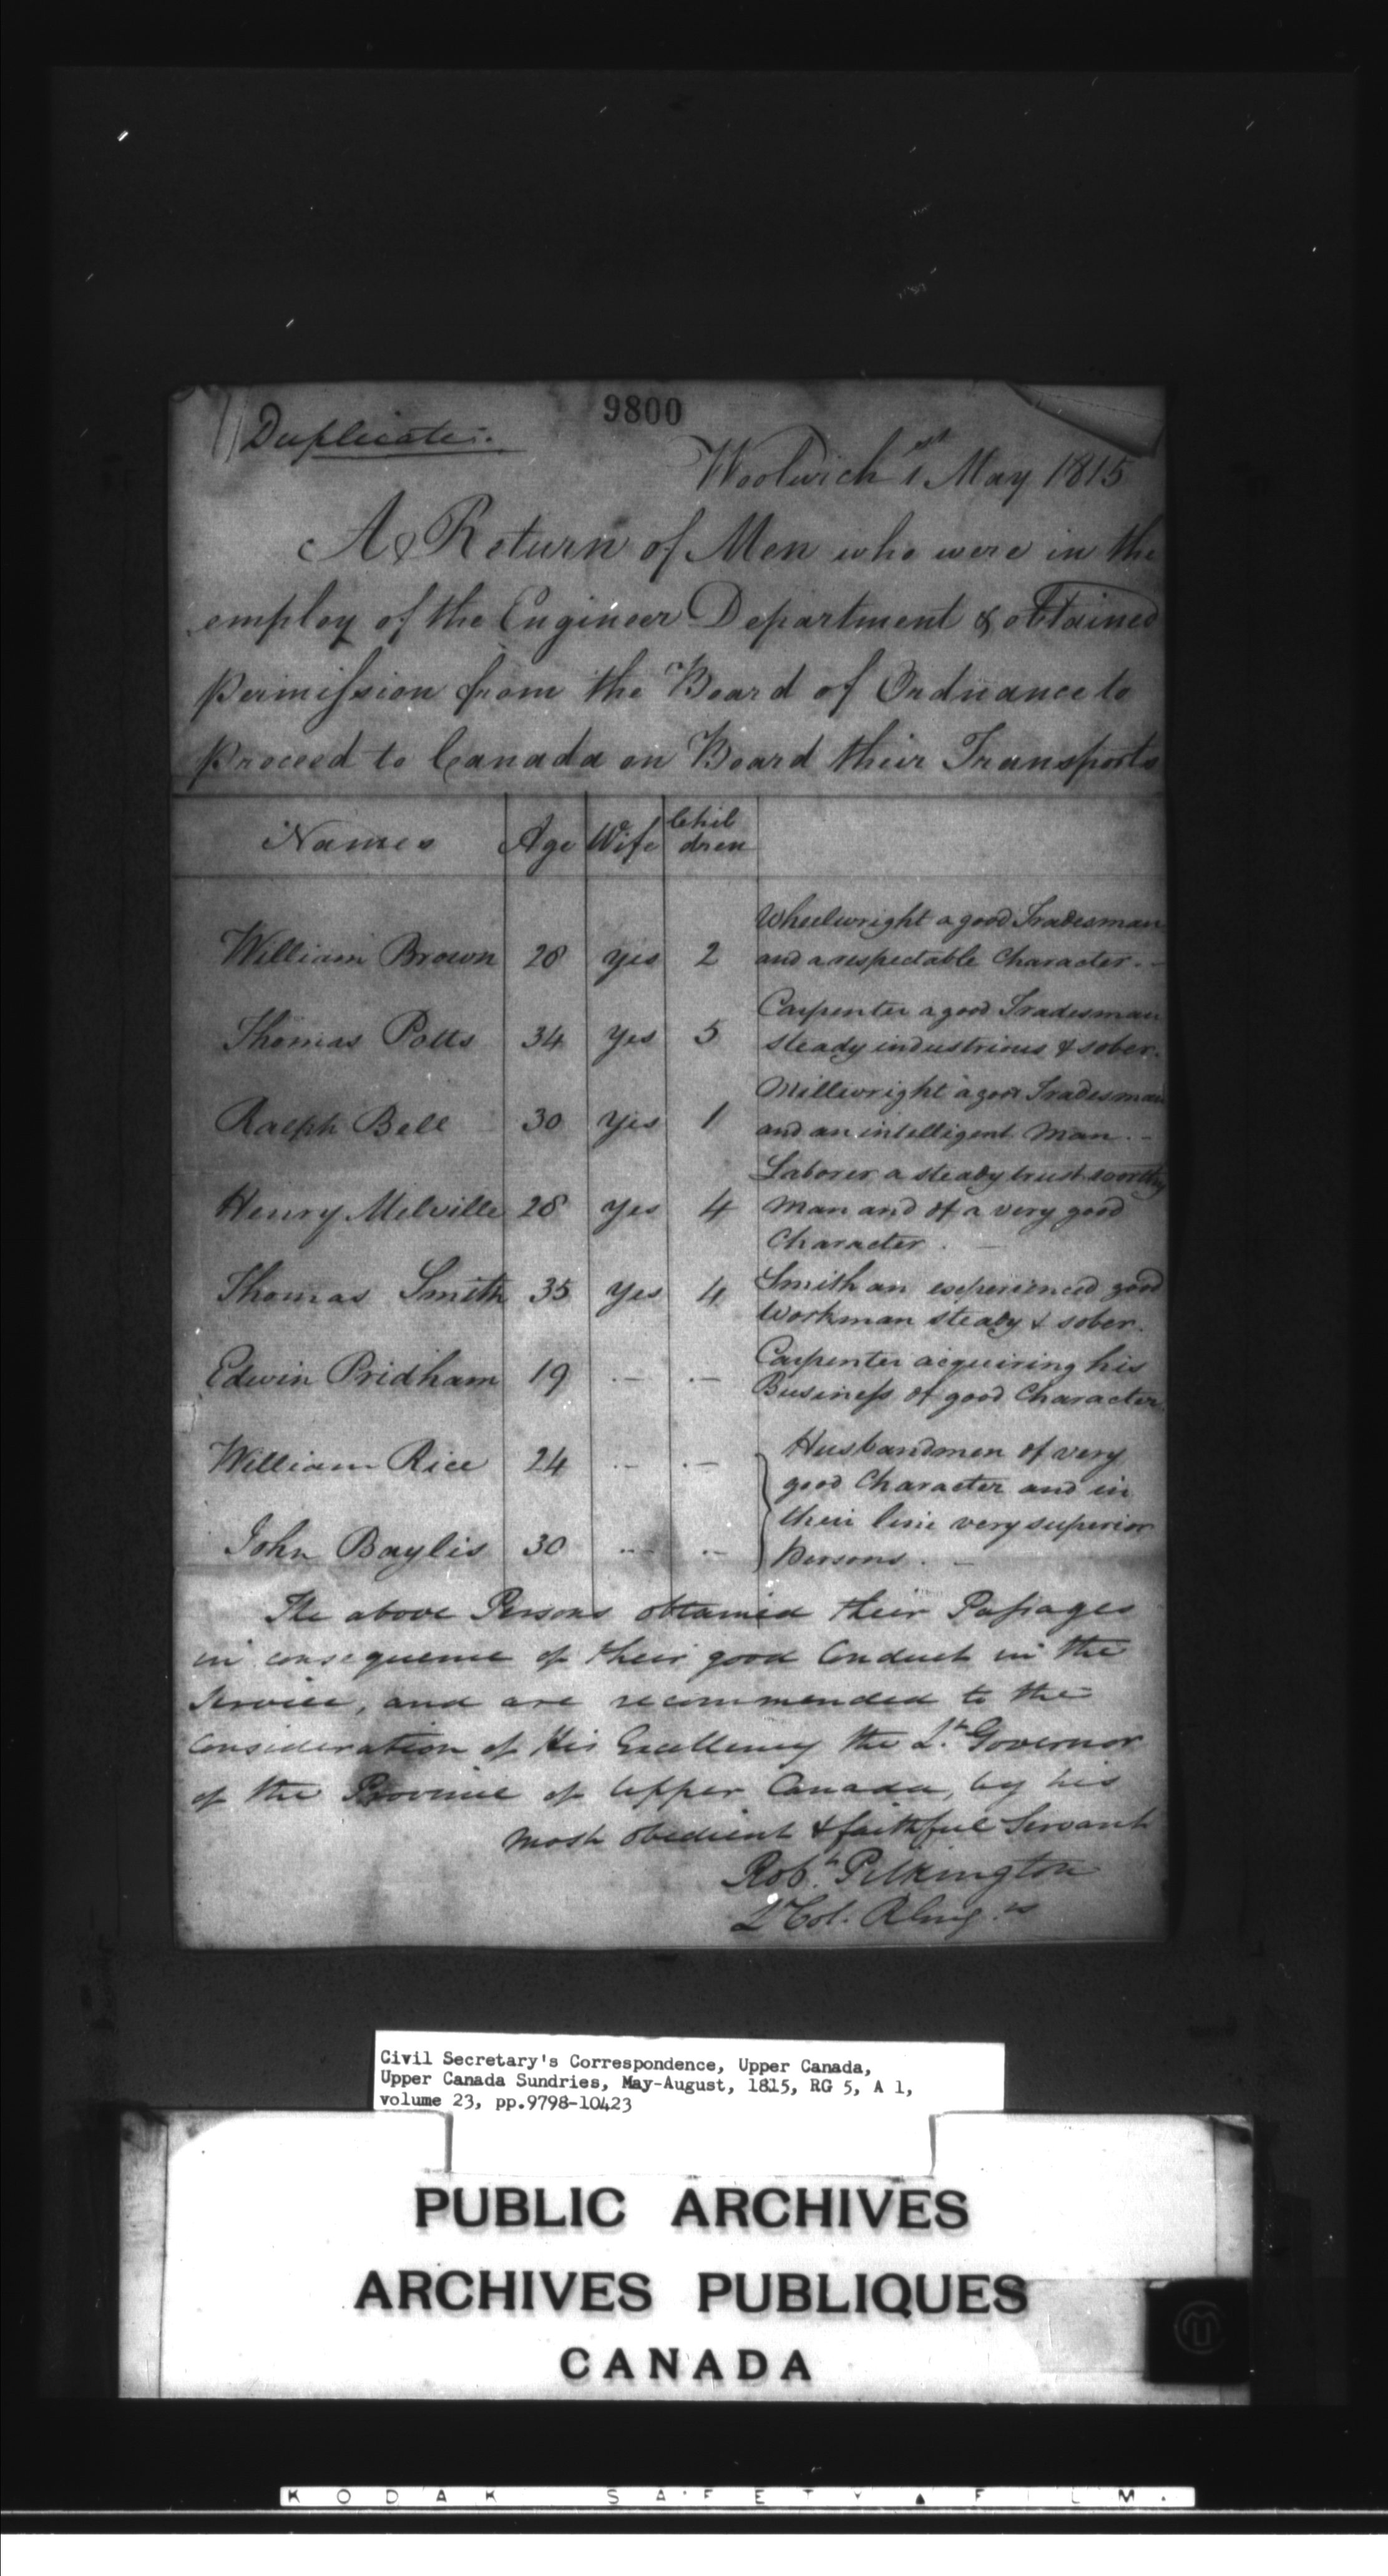 9800
Duplicate.
Woolwich 1st May 1815
A Return of Men who were in the
employ of the Engineer Department & obtained
permission from the Board of Ordnance to
proceed to Canada on Board their Transports
Names Age Wife Chil
dren
Wheelwright a good Tradesman
William Brown 28 yes 2 and a respectable Character. -
Carpenter a good Tradesman
Thomas Potts 34 yes 5 steady industrious & sober.
Millwright a good Tradesman
Ralph Bell 30 yes 1 and an intelligent Man. -
Laborer a steady trustworthy
Henry Melville 28 yes 4 Man and of a very good
Character. -
Thomas Smith 35 yes 4 Smith an experienced good
Workman steady & sober.
Carpenter acquiring his
Edwin Pridham 19 .- .- Business of good Character.
Husbandmen of very
William Rice 24 .- .- good Character and in
their line very superior
John Baylis 30 .. .. persons. -
The above Persons obtained their Passages
in consequence of their good Conduct in the
Service, and are recommended to the
Consideration of His Excellency the Lt. Governor
of the Province of Upper Canada, by his
most obedient & faithful Servant
Robt. Pilkington
Lt Col. R Engrs
Civil Secretary's Correspondence, Upper Canada,
Upper Canada Sundries, May-August, 1815, RG 5, A 1,
volume 23, pp.9798-10423
PUBLIC ARCHIVES
ARCHIVES PUBLIQUES
CANADA
KODAK SAFETY ▲ FILM.